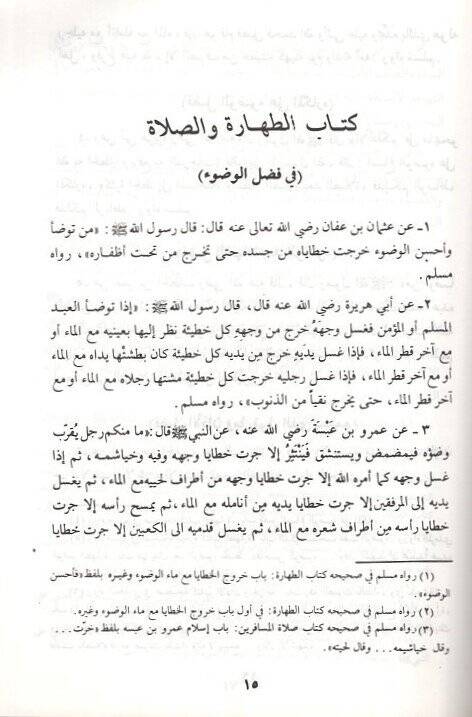 كتاب الطهارة والصلاة
(في فضل الوضوء)
١ـ عن عثمان بن عفان رضي الله تعالى عنه قال: قال رسول الله ﷺ: «من توضأ
وأحسن الوضوء خرجت خطاياه من جسده حتى تخرج من تحت أظفاره»، رواه
مسلم.
٢ـ عن أبي هريرة رضي الله عنه قال، قال رسول الله ﷺ: «إذا توضأ العبد
المسلم أو المؤمن فغسل وجهَهُ خرج من وجههِ كل خطيئة نظر إليها بعينيه مع الماء أو
مع آخر قطر الماء، فإذا غسل يدَيهِ خرج مِن يديه كل خطيئة كان بطشتْها يداه مع الماء
أو مع آخر قطر الماء، فإذا غسل رجليه خرجت كل خطيئة مشتها رجلاه مع الماء أو مع
آخر قطر الماء، حتى يخرج نقياً من الذنوب»، رواه مسلم.
٣ ـ عن عمرو بن عَبْسَةَ رضي الله عنه، عن النبي ﷺ قال: «ما منكم رجل يُقرّب
وضوْءه فيمضمض ويستنشق فَيَنْتَثِرُ إلا جرت خطايا وجهه وفيه وخياشمه، ثم إذا
غسل وجهه كما أمره الله إلا جرت خطايا وجهه من أطراف لحييه مع الماء، ثم يغسل
يديه إلى المرفقين إلا جرت خطايا يديه مِن أنامله مع الماء، ثم يمسح رأسه إلا جرت
خطايا رأسه مِن أطراف شعره مع الماء، ثم يغسل قدميه الى الكعبين إلا جرت خطايا
(١) رواه مسلم في صحيحه كتاب الطهارة: باب خروج الخطايا مع ماء الوضوء وغيره بلفظ «فأحسن
الوضوء».
(٢) رواه مسلم في صحيحه كتاب الطهارة: في أول باب خروج الخطايا مع ماء الوضوء وغيره.
(٣) رواه مسلم في صحيحه كتاب صلاة المسافرين: باب إسلام عمرو بن عبسه بلفظ «خرّت...
وقال خياشيمه... وقال لحيته».
١٥